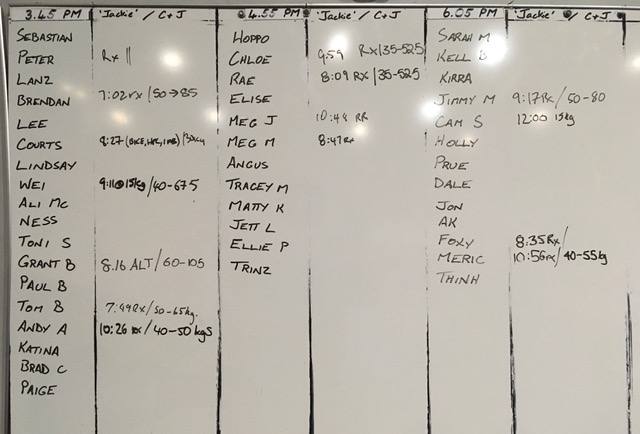 3.45 PM 'Jackie' / C+J 4.55 PM 'Jackie' / C+J 6.05 PM 'Jackie' / C+J
SEBASTIAN HOPPO SARAH M
PETER Rx || CHLOE 9:59 Rx/35-52.5 KELL B
LANZ RAE 8:09 Rx/35-52.5 KIRRA
BRENDAN 7:02 rx/50→85 ELISE JIMMY M 9:17 Rx/50-80
LEE MEG J 10:48 RX CAM S 12:00 15kg
COURTS 8:27 MEG M 8:47 Rx HOLLY
LINDSAY ANGUS PRUE
WEI 9:11@15kg/40-67.5 TRACEY M DALE
ALI MC MATTY K JON
NESS JETT L AK
TONI S ELLIE P FOXY 8:35 Rx/
GRANT B 8.16 ALT/60-105 TRINZ MERIC 10:56rx/40-55kg
PAUL B THINH
TOM B 7:49Rx/50-65kg.
ANDY A 10:26 RX/40-50kgs
KATINA
BRAD C
PAIGE